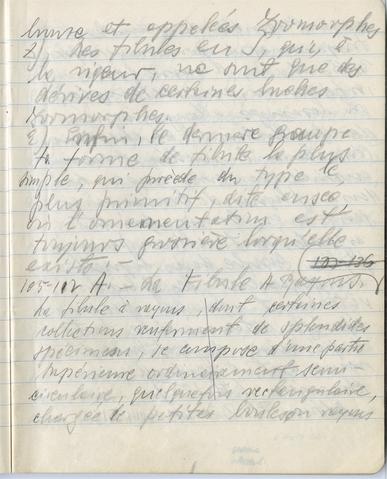 bronze et appelées Zoomorphes
2) Des fibules en S, qui, à
la rigueur, ne sont que des
dérives de certaines broches
Zoomorphes.
3) Enfin, le dernier groupe
forme de fibule la plus
simple, qui procède du type le
plus primitif, dite ansée,
où l'ornementation est
toujours grossière lorsqu'elle
existe —
122-136
105-112 A. — La Fibule A rayons.
La fibule à rayons, dont certaines
collections renferment de splendides
spécimens, se compose d'une partie
supérieure ordinairement semi-
circulaire, quelquefois rectangulaire,
chargée de petites boules ou rayons